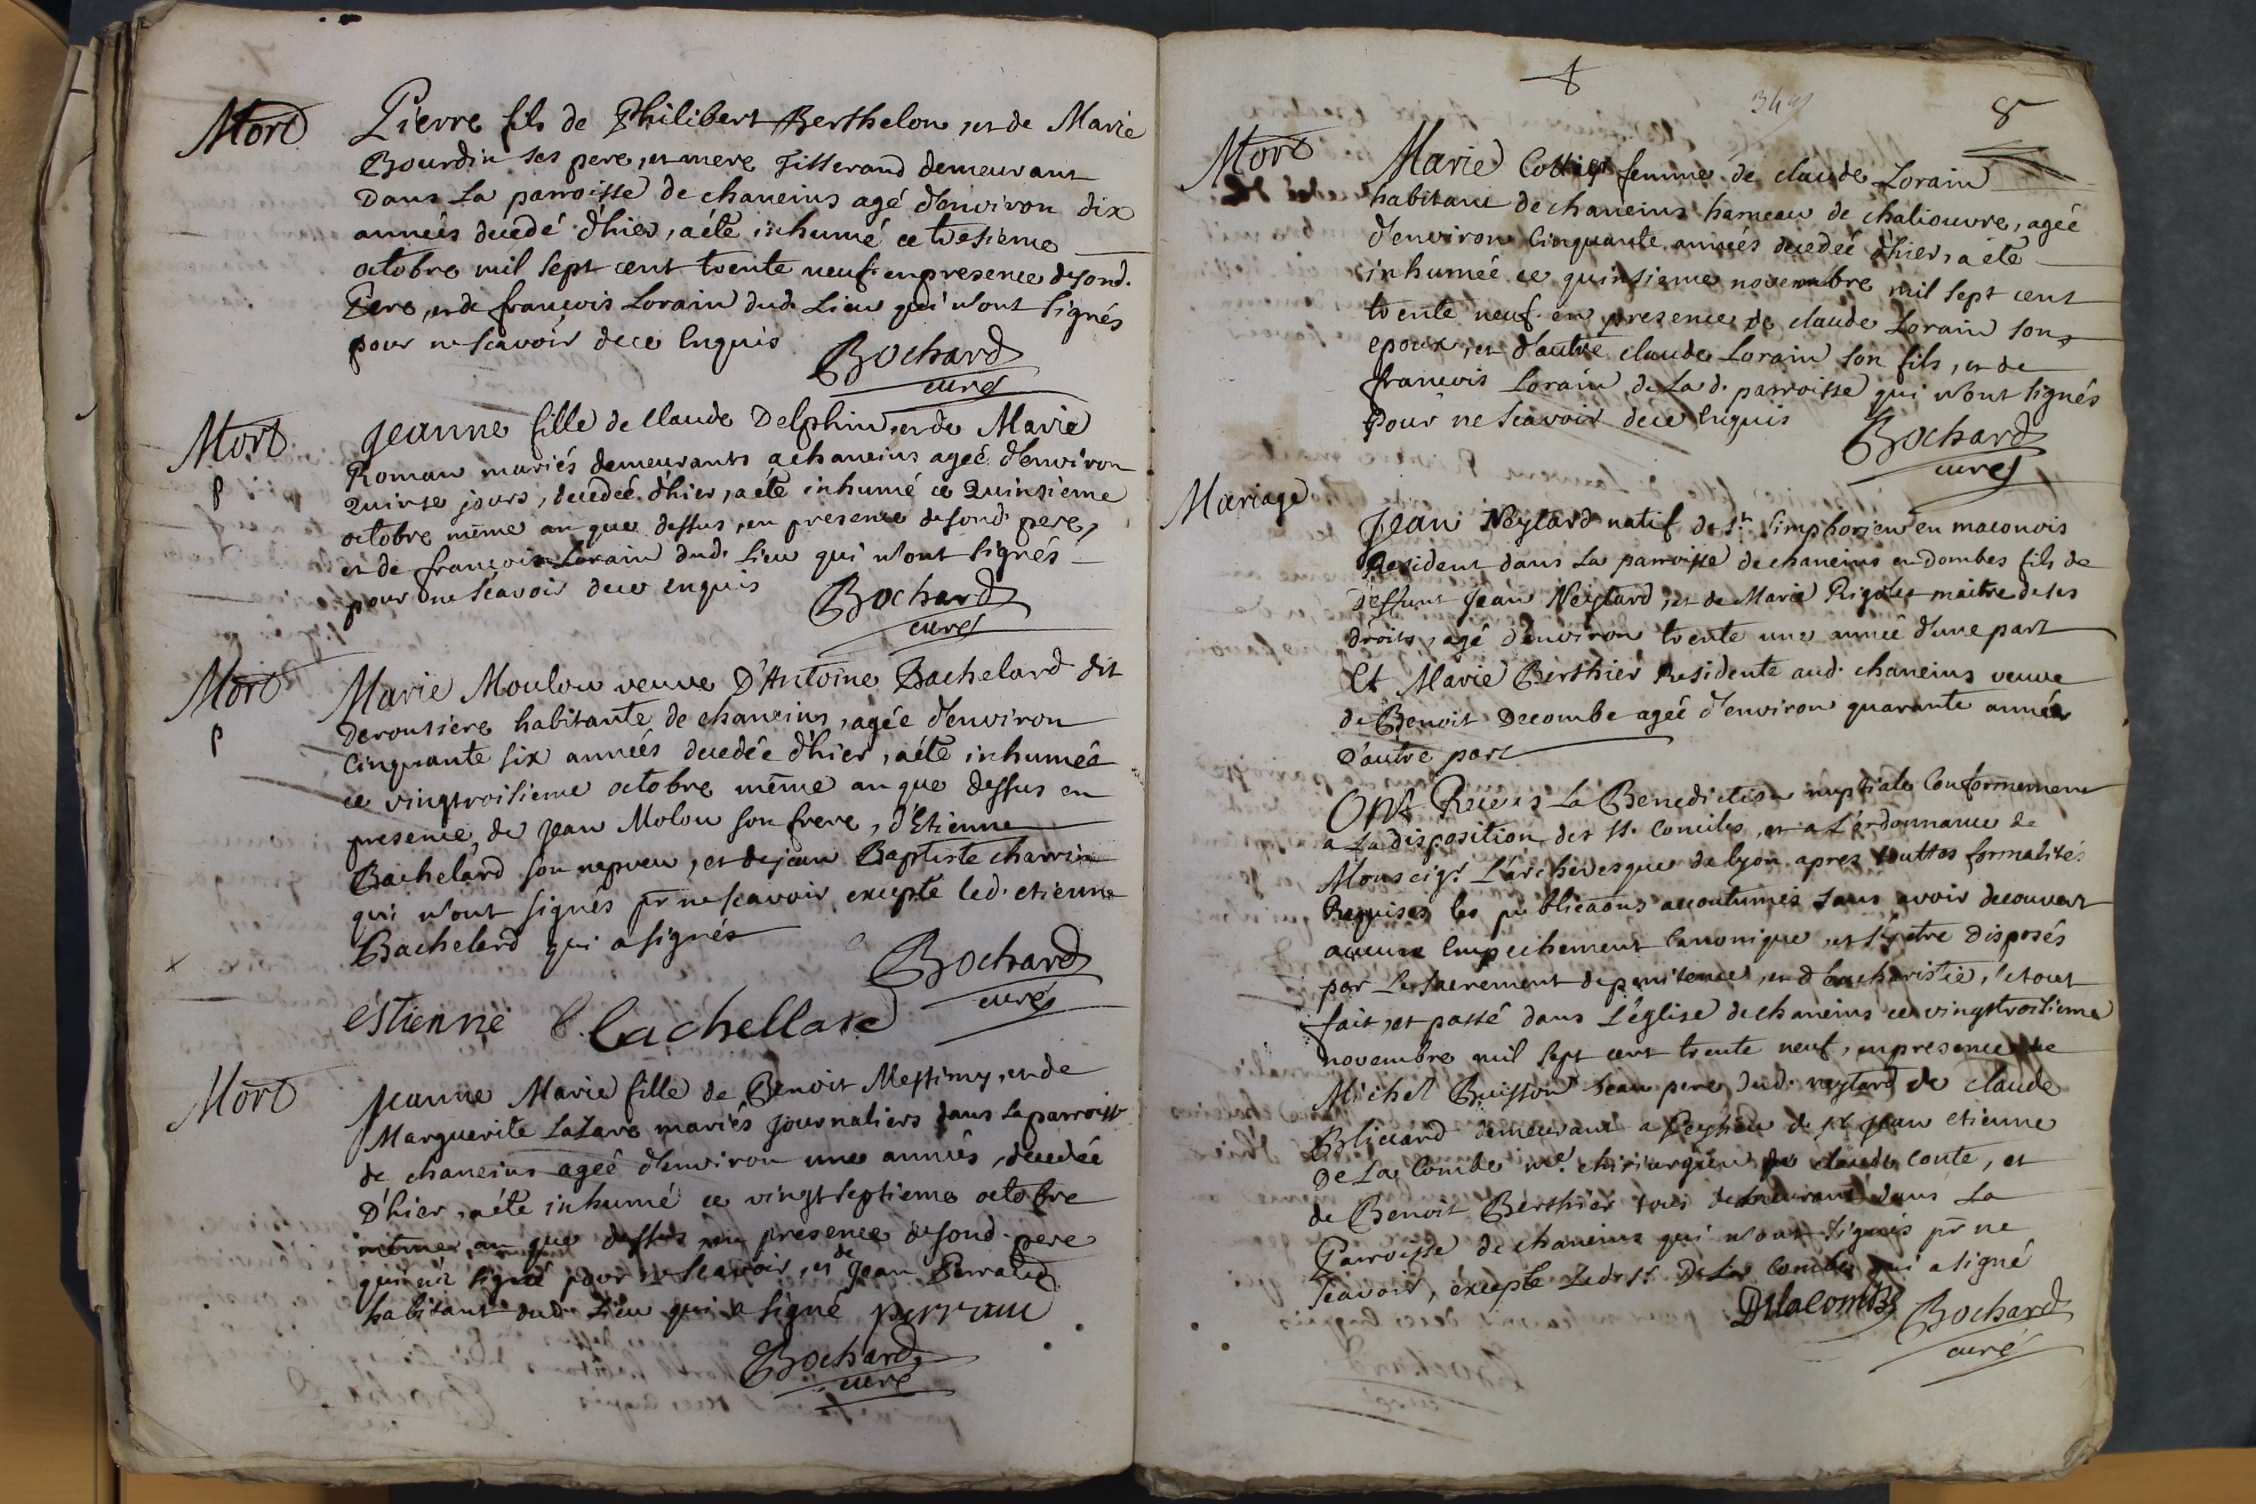 Mort
Pierre fils de Philibert Berthelon, et de Marie
Bourdin ses pere, et mere Tisserand demeurant
Dans La parroisse de chaneins agé d'environ dix
années decedé d'hier, a été inhumé ce tresieme
octobre mil sept cent trente neuf en presence de sond.
Pere, et de françois Lorain dud. Lieu qui n'ont signés
pour ne scavoir de ce Enquis
Bochard
curé
Mort
p
Jeanne fille de Claude Delphin, et de Marie
Roman mariés demeurants a chaneins ageé d'environ
Quinse jours, decedeé d'hier, a été inhumé ce Quinsieme
octobre même an que dessus, en presence de sond. pere,
et de francois Lorain dud. Lieu qui n'ont signés
pour ne scavoir de ce enquis
Bochard
curé
Mort
p
Marie Moulon veuve D'Antoine Bachelard dit
deroussiere habitante de chaneins, agée d'environ
Cinquante six années decedée d'hier, a été inhumée
ce vingtroisieme octobre même an que dessus en
presence, de Jean Molon son frere, d'Etienne
Bachelard son nepveu, et de jean Baptiste charrin
qui n'ont signés pr ne scavoir, excepte led. etienne
Bachelard qui a signés
Bochard
curé
éstienne Bachellard
Mort
Jeanne Marie fille de Benoit Messimy, et de
Marguerite Lazare mariés journaliers dans La parroisse
de chaneins ageé d'environ une années, decedeé
D'hier, a été inhumé ce vingt septieme octobre
même an que dessus, en presence de sond. pere
qui n'a signé pour ne scavoir, et de Jean Perraud
habitant dud. Lieu qui a signé perrau
Bochard
curé
8
Mort
Marie femme de claude Lorain
habitant de chaneins hameau de chaliouvre, ageé
d'environ Cinquante années decedeé d'hier, a été
inhumeé ce quinsieme novembre mil sept cent
trente neuf en presence de claude Lorain son
epoux, et d'autre claude Lorain son fils, et de
francois Lorain de La d. parroisse qui n'ont signés
Pour ne scavoir de ce Enquis
Bochard
curé
Mariage
Jean Neylard natif de St. Simphorien en maconois
Resident dans La parroisse de chaneins en dombes fils de
deffunt Jean Neylard, et de Marie Rigolet maitre de ses
droits, agé d'environ trente une année d'une part
Et Marie Berthier Residente aud. chaneins veuve
de Benoit Decombe ageé d'environ quarante années
D'autre part
Ont Receus La Benediction nuptiale Conformement
a La disposition des SS. Conciles, et a L'ordonnance de
Monseigr. L'archevesque de lyon apres touttes formalités
Requises les publicaons accoutumés sans avoir decouvert
aucun Empechement Canonique et s'etre disposés
par Le sacrement de penitence, et d'Eucharistie, Le tout
fait, et passé dans L'église de chaneins ce vingtroisieme
novembre mil sept cent trente neuf, en presence de
Michel Buisson beau pere dud. neylard de claude
demeurant a de Sr Jean etienne
De La Combe me. chirurgien de claude conte, et
de Benoit Berthier tous demeurant dans La
Parroisse de chaneins qui n'ont signés pr ne
scavoir, excepte Led. Sr. De La Combe qui a signé
Delacombe
Bochard
curé